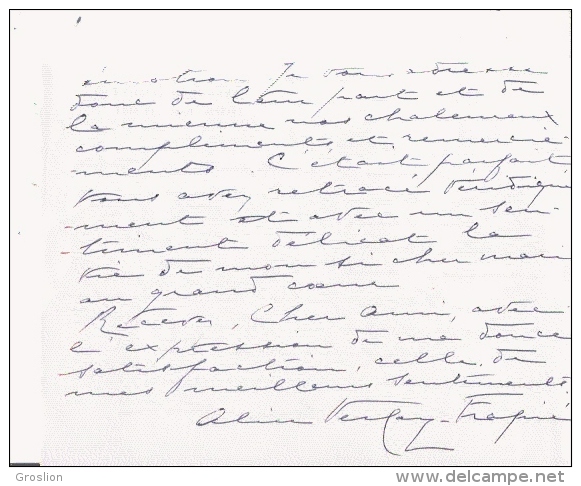 émotion. Je vous adresse
donc de leur part et de
la mienne nos chaleureux
compliments et remercie-
ments. C'était parfait
vous avez retracé véridique
-ment et avec un sen-
-timent délicat la
vie de mon si cher mari
au grand cœur
Recevez, Cher Ami, avec
l'expression de ma douce
satisfaction, celle de
mes meilleurs sentiments
Groslion
www.delcampe.net